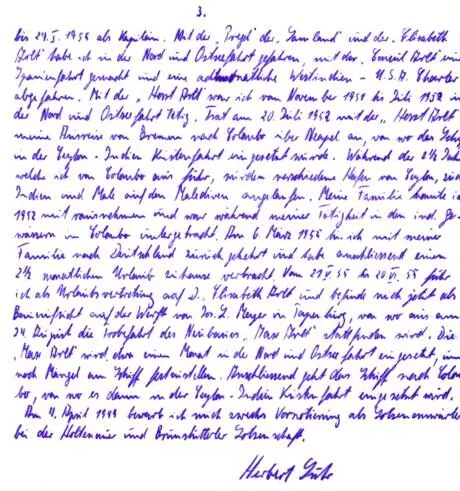 3.
bis 24.I. 1951 als Kapitän. Mit der "Pregel" der "Samland" und der "Elisabeth
Bolt" habe ich in der Nord und Ostseefahrt gefahren, mit der "Emeil Bolt" ein
Spanienfahrt gemacht und eine achtmonatliche Westindien - U.S.A. Charter
abgefahren. Mit der "Horst Bolt" war ich vom November 1951 bis Juli 1952 in
der Nord und Ostseefahrt tätig. Trat am 20 Juli 1952 mit der "Horst Bolt"
meine Ausreise von Bremen nach Colombo über Neapel an, wo das Schiff
in der Ceylon - Indien Küstenfahrt eingesetzt wurde. Während der 2½ Jahre
welche ich von Colombo aus fuhr, wurden verschiedene Häfen von Ceylon, Süd
Indien und Male auf den Malediven angelaufen. Meine Familie konnte ich
1952 mit rausnehmen und war während meiner Tätigkeit in den ind. Ge-
wässern in Colombo untergebracht. Am 6. März 1955 bin ich mit meiner
Familie nach Deutschland zurück gekehrt und habe anschliessend einen
2½ monatlichen Urlaub zuhause verbracht. Vom 21 V. 55 bis 20 VI. 55 fuhr
ich als Urlaubsvertretung auf D. "Elisabeth Bolt" und befinde mich jetzt als
Bauaufsicht auf der Werft von Jos. L. Meyer in Papenburg, von wo aus am
24. August die Probefahrt des Neubaues "Marx Bolt" stattfinden wird. Die
"Marx Bolt" wird etwa einen Monat in der Nord und Ostseefahrt eingesetzt, um
noch Mängel am Schiff festzustellen. Anschliessend geht das Schiff nach Colom
bo, von wo es dann in der Ceylon - Indien Küstenfahrt eingesetzt wird.
Am 11. April 1949 bewarb ich mich zwecks Vornotierung als Lotsenanwärter
bei der Holtenauer und Brunsbütteler Lotsenschaft.
Herbert